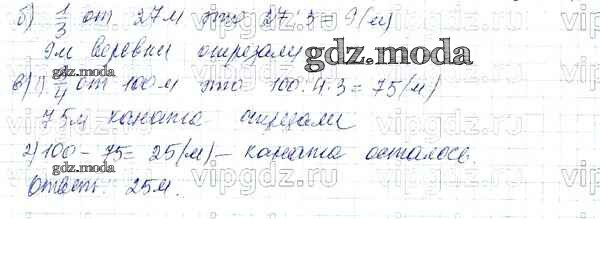 б) 1/3 от 27м это 27:3 = 9(м)
9м веревки отрезали
gdz.moda
в) 1) 3/4 от 100м это 100:4·3 = 75(м)
gdz.moda
75м каната отрезали
vipgdz.ru
2) 100 - 75 = 25(м) - каната осталось.
gdz.moda
Ответ: 25м.
vipgdz.ru